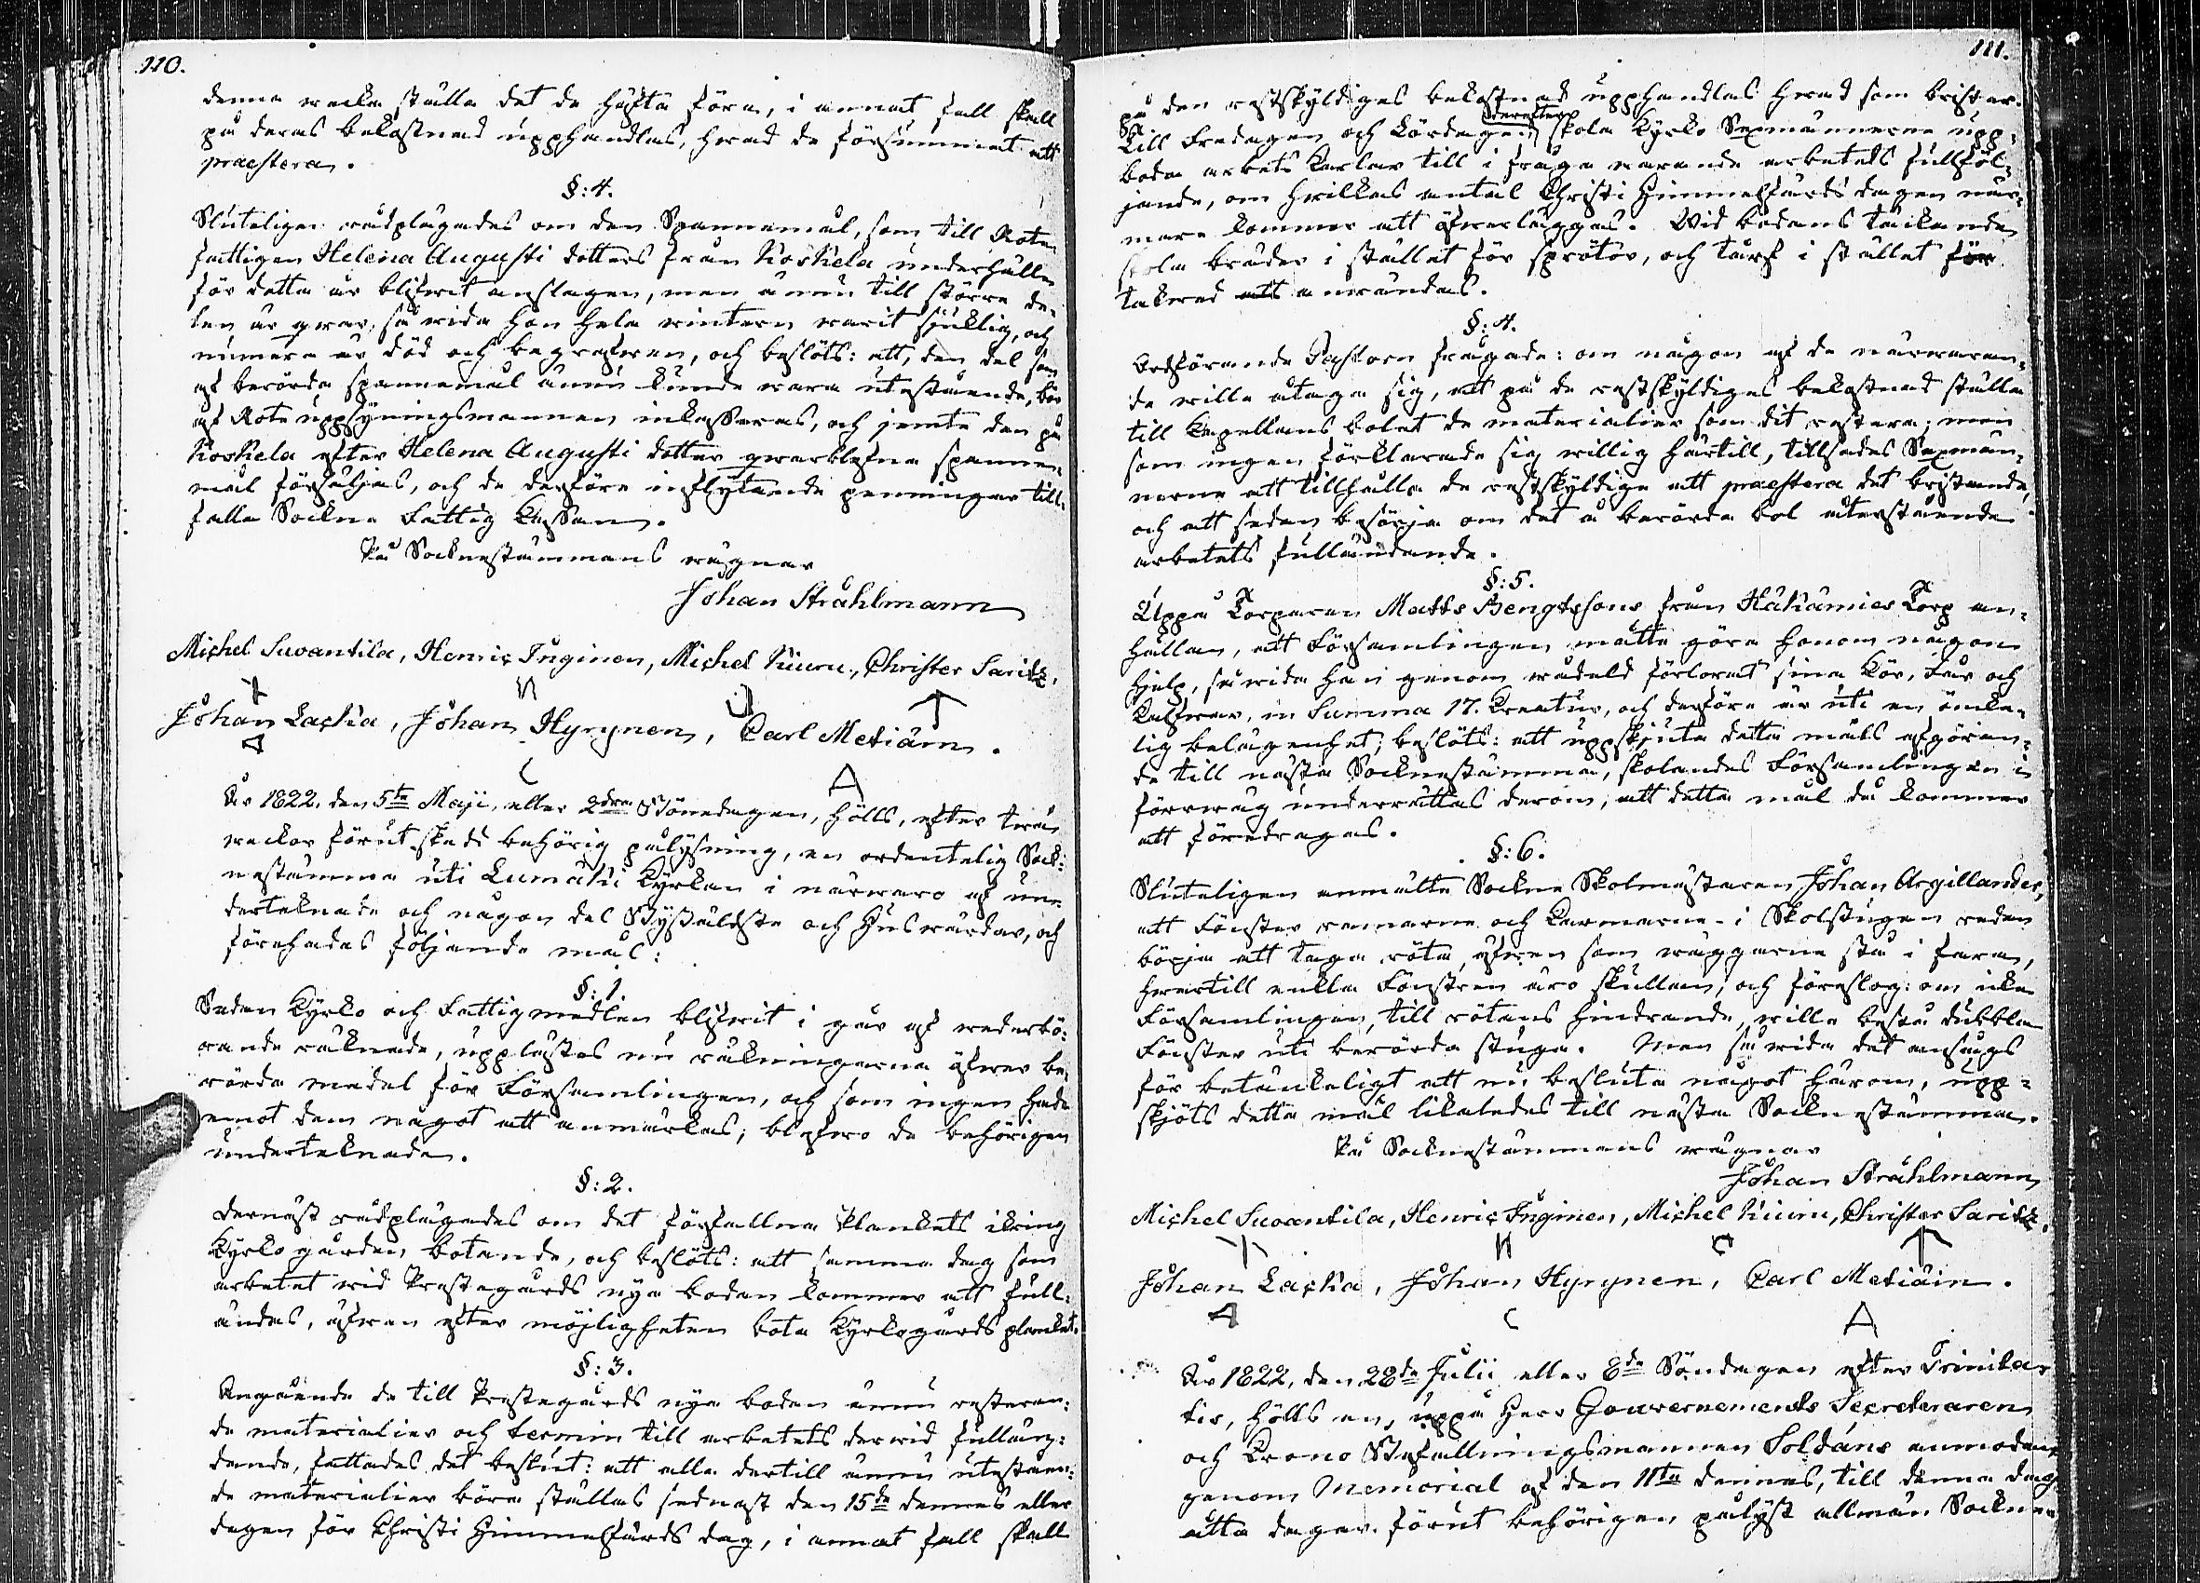 110.
denna wecka ställa det de håfta före, i annat fall skall
på deras bekostnad upphandlas, hwad de försummat att
praestera.
§: 4.
Sluteligen rådplägades om den Spannemål, som till Rote
fattigen Helena Augusti dotters från Koskela underhålle
för detta år blifwit anslagen, men ännu till större de-
len är qwar, så wida hon hela wintern warit sjuklig, och
numera är död och begrafwen, och beslöts: att, den del som
af berörda spannemål ännu kunde wara utestående, bör
af Rote uppsyningsmannen inkasseras, och jemte den på
Koskela efter Helena Augusti dotter qwarblefne spanne-
mål försäljas, och de derföre inflytande penningar till-
falla Sockne Fattig Cassan.
På Socknestämmans wägnar
Johan Stråhlmann
Michel Suvantila, Henric Inginen, Michel Kiuru, Christer Saritz,
Johan Lacka, Johan Hyrynen, Carl Metiäin.
År 1822, den 5te Maji, eller 2dra Bönedagen, hölls, efter twå
weckor förut skedd behörig pålysning, en ordentelig Sock-
nestämma uti Lumäki Kyrkan i närwaro af un-
dertecknade och någon del Byäldste och Huswärdar, och
förehades följande mål:
§: 1.
Sedan Kyrko och Fattigmedlen blifwit i går af wederbö-
rande räknade, upplästes nu räkningarna öfwer be-
rörda medel för Församlingen, och som ingen hade
emot dem något att anmärkas; blefwo de behörigen
undertecknade.
§: 2.
Dernäst rådplägades om det förfallna Plankets ikring
Kyrkogården botande, och beslöts: att samma dag som
arbetet wid Prestegårds nya boden kommer att full-
ändas, äfwen efter möjligheten bota Kyrkogårds planket.
§: 3.
Angående de till Prestegårds nya boden ännu resteran-
de materialier och termin till arbetets derwid fullän-
dande, fattades det beslut: att alla dertill ännu uteståen-
de materialier böra ställas sednast den 15de dennes eller
dagen för Christi Himmelsfärds dag, i annat fall skall
111.
på den restskyldiges bekostnad upphandlas hwad som brister.
Till Fredagen och Lördagen derefter skola Kyrko Sexmännerne upp-
båda arbets Karlar till i fråga warande arbetets fullföl-
jande, om hwilkas antal Christi Himmelsfärds dagen när-
mare kommer att öfwerläggas. Wid bodans täckande
skola bräder i stället för sprötor, och tärf i stället för
takwed att användas.
§: 4.
Ordförande Pastorn frågade: om någon af de närwaran-
de wille åtaga sig, att på de restskyldiges bekostnad ställa
till Capellans bolet de materialier som dit restera; men
som ingen förklarade sig willig härtill, tillsades Sexmän-
nerne att tillhålla de restskyldige att praestera det bristande,
och att sedan besörja om det å berörda bol återstående
arbetets fulländande.
§: 5.
Uppå Torparen Matts Bengtssons från Häkämies Torp an-
hållan, att Församlingen måtte göra honom någon
hjelp, så wida han genom wådeld förlorat sina Kör, Får och
Kalfwar, in Summa 17. Kreatur, och derföre är uti en ömke-
lig belägenhet; beslöts: att uppskjuta detta måls afgöran-
de till nästa Socknestämma, skolandes Församlingen i
förwäg underrättas derom, att detta mål då kommer
att föredragas.
§: 6.
Sluteligen anmälte Sockne Skolmästaren Johan Argillander,
att Fönster ramarne och Karmarne i Skolstugan redan
börja att taga röta, äfwen som wäggarne stå i fara,
hwartill enkla Fönstren äro skullen; och föreslog: om icke
Församlingen, till rötans hindrande, wille bestå dubbla
Fönster uti berörda stuga. Men så wida det ansågs
för betänkeligt att nu besluta något härom, upp-
skjöts detta mål likaledes till nästa Socknestämma.
På Socknestämmans wägnar
Johan Stråhlmann
Michel Suvantila, Henric Inginen, Michel Kiuru, Christer Saritz,
Johan Lacka, Johan Hyrynen, Carl Metiäin.
År 1822, den 28de Julii eller 8de Söndagen efter Trinita-
tis, hölls en, uppå Herr Gouvernements Secreteraren
och Krono Befallningsmannen Soldáns anmodan
genom Memorial af den 11te dennes, till denna dag
åtta dagar förut behörigen pålyst allmän Sockne-